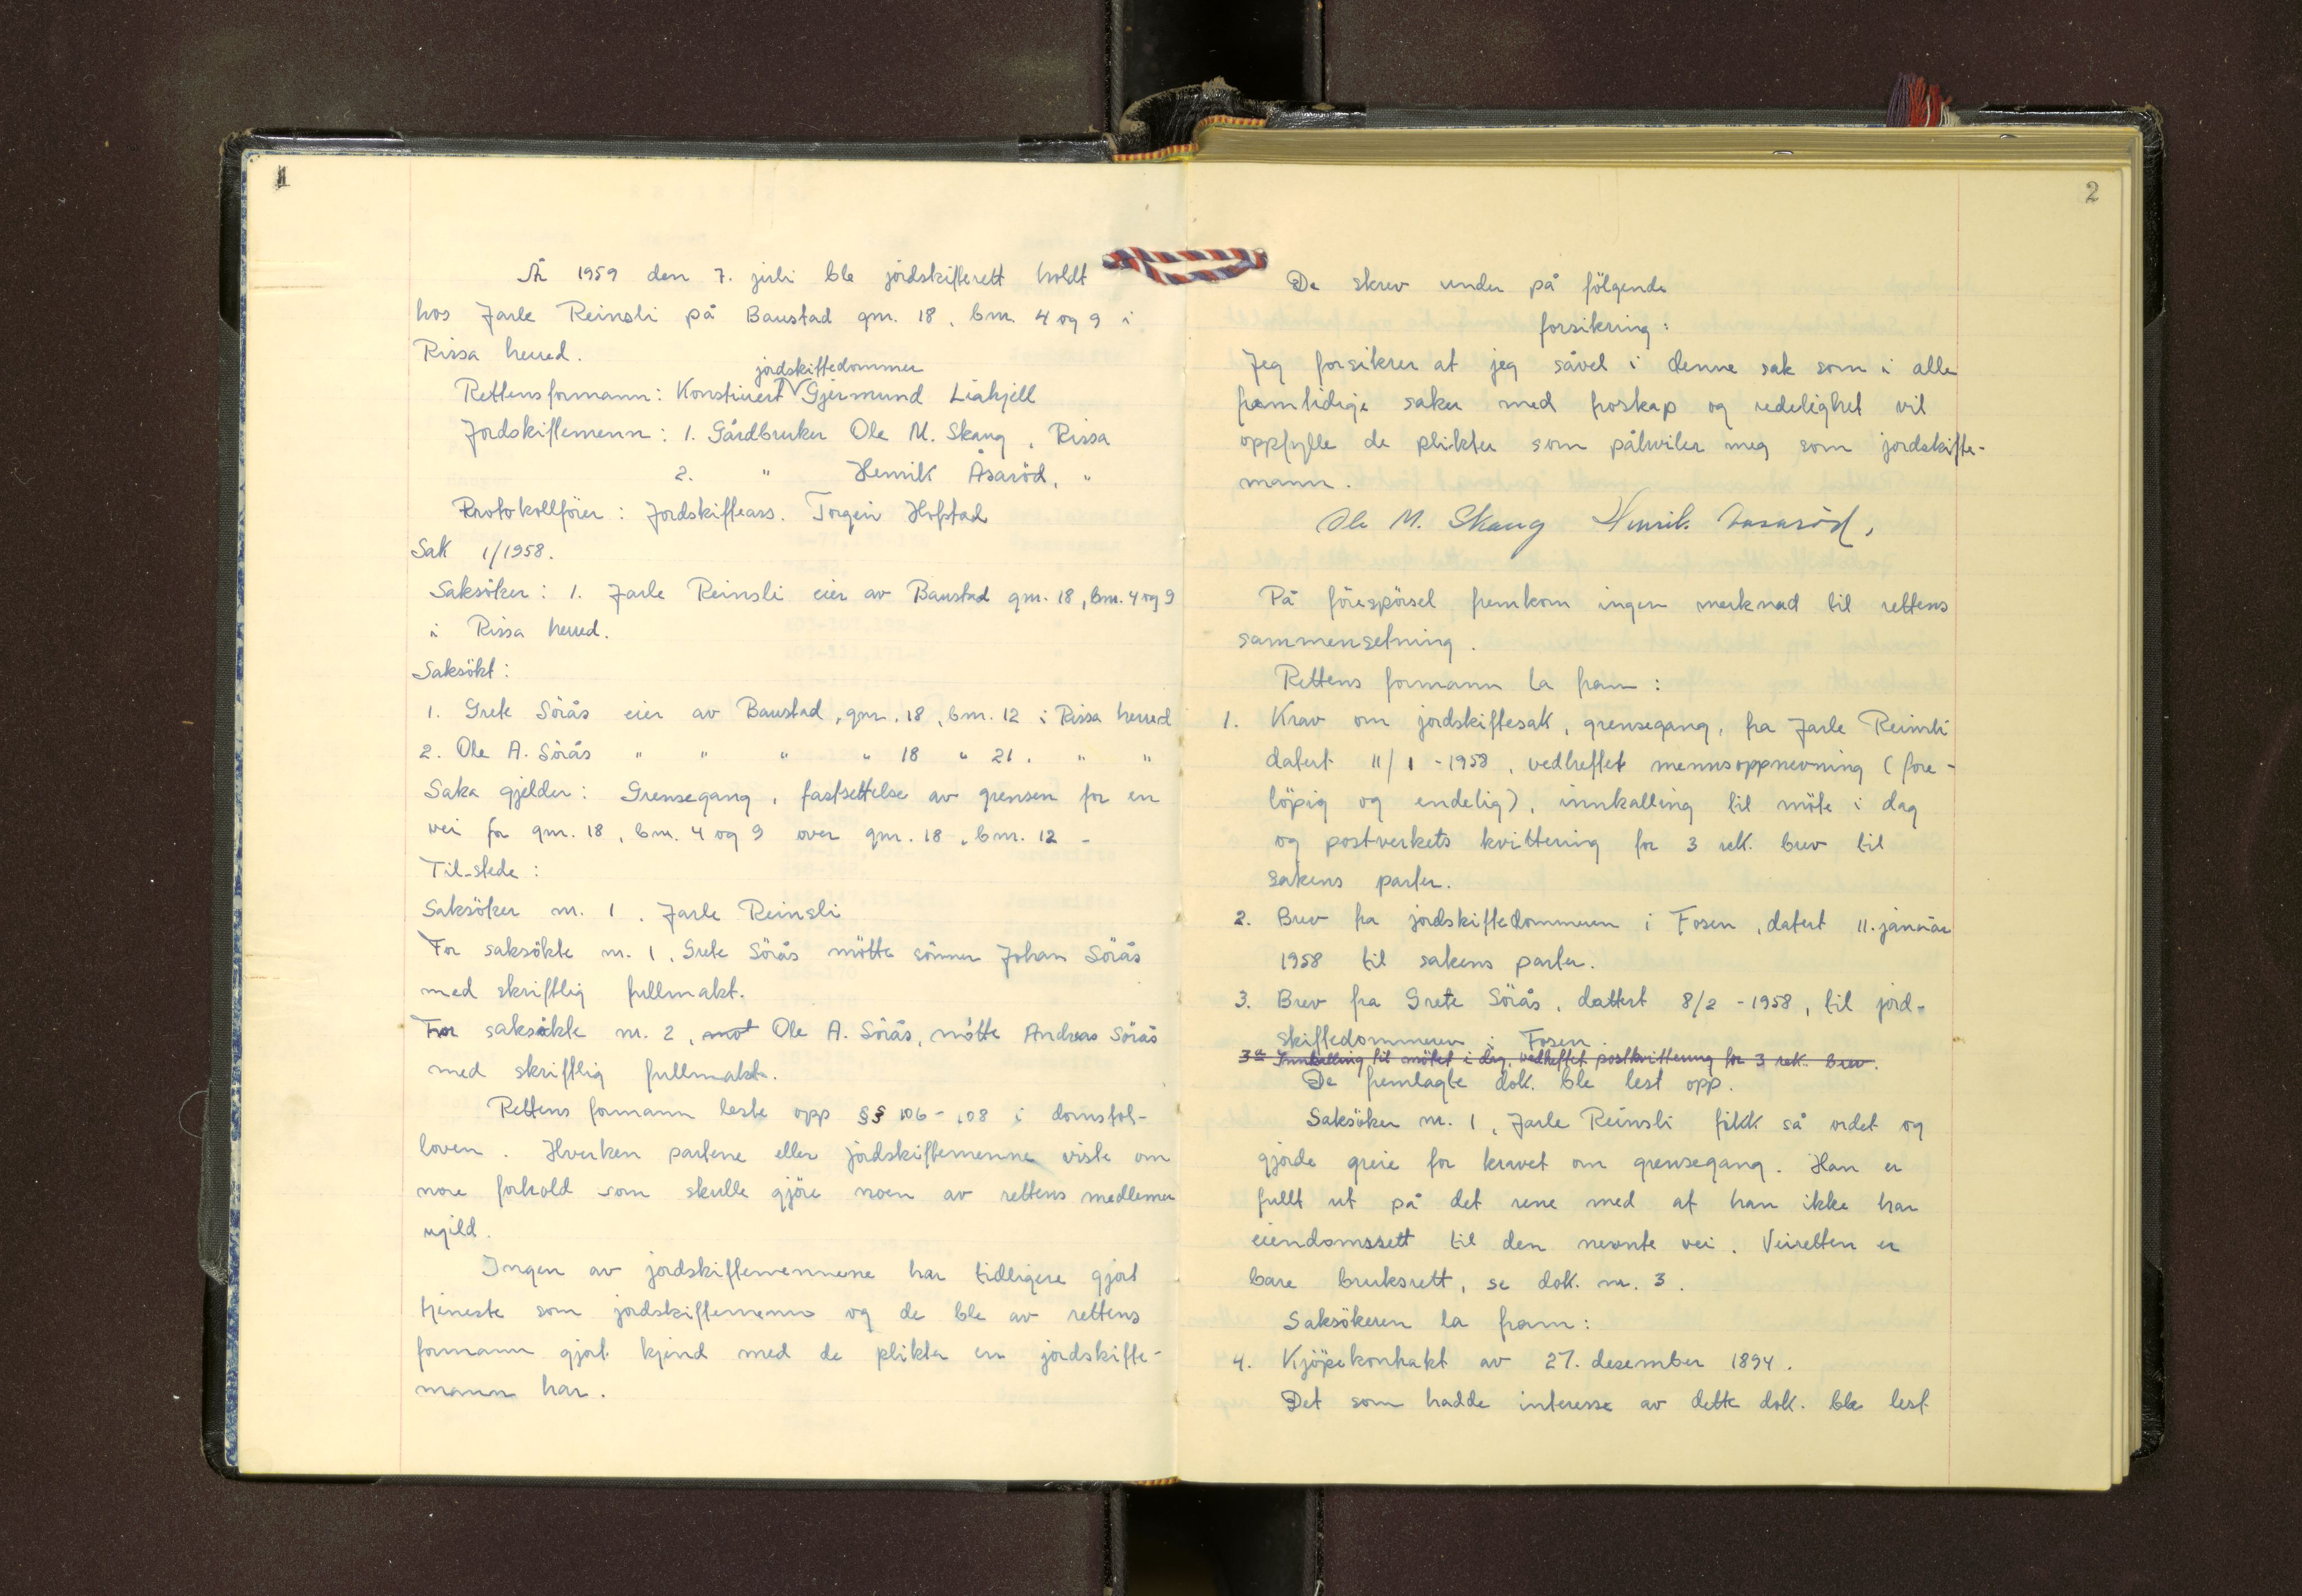 1
År 1959 den 7. juli ble jordskifterett holdt
hos Jarle Reinsli på Baustad gnr. 18, bnr. 4 og 9 i
Rissa herred.
jordskiftedommer
Rettens formann: Konstituert Gjermund Liahjell
Jordskiftemenn: 1. Gårdbruker Ole M. Skaug, Rissa
2. " Henrik Åsaröd, "
Protokollförer: Jordskifteass. Torgeir Hofstad
Sak 1/1958.
Saksöker: 1. Jarle Reinsli eier av Baustad gnr. 18, bnr. 4 og 9
i Rissa herred.
Saksökt:
1. Grete Sörås eier av Baustad, gnr. 18, bnr. 12 i Rissa herred
2. Ole A. Sörås " " " " 18 " 21. " "
Saka gjelder: Grensegang, fastsettelse av grensen for en
vei for gnr. 18, bnr. 4 og 9 over gnr. 18, bnr. 12 -
Til-stede:
Saksöker nr. 1. Jarle Reinsli
For saksökte nr. 1, Grete Sörås mötte sönnen Johan Sörås
med skriftlig fullmakt.
For saksökte nr. 2, møt Ole A. Sörås, mötte Andreas Sörås
med skriftlig fullmakt.
Rettens formann leste opp §§ 106-108 i domstol-
loven. Hverken partene eller jordskiftemenne viste om
noe forhold som skulle gjöre noen av rettens medlemer
ugild.
Ingen av jordskiftemennene har tidligere gjort
tjeneste som jordskiftemenn og de ble av rettens
formann gjort kjend med de plikter en jordskifte-
mann har.
2
De skrev under på fölgende
forsikring:
Jeg forsikrer at jeg såvel i denne sak som i alle
framtidige saker med troskap og redelighet vil
oppfylle de plikter som påhviler meg som jordskifte-
mann.
Ole M. Skaug Henrik Aasaröd,
På förespörsel fremkom ingen merknad til rettens
sammensetning.
Rettens formann la fram:
1. Krav om jordskiftesak, grensegang, fra Jarle Reinsli
datert 11/1-1958, vedheftet mennsoppnevning (fore-
löpig og endelig), innkalling til möte i dag
og postverkets kvittering for 3 rek. brev til
sakens parter.
2. Brev fra jordskiftedommeren i Fosen, datert 11. januar
1958 til sakens parter.
3. Brev fra Grete Sörås, dattert 8/2-1958, til jord-
skiftedommeren i Fosen.
3a Innkalling til mötet i dag, vedheftet postkvittering for 3 rek. brev.
De fremlagte dok. ble lest opp.
Saksöker nr. 1, Jarle Reinsli fikk så ordet og
gjorde greie for kravet om grensegang. Han er
fullt ut på det rene med at han ikke har
eiendomsrett til den nevnte vei. Veiretten er
bare bruksrett, se dok. nr. 3.
Saksökeren la fram:
4. Kjöpekontrakt av 27. desember 1894.
Det som hadde interesse av dette dok. ble lest